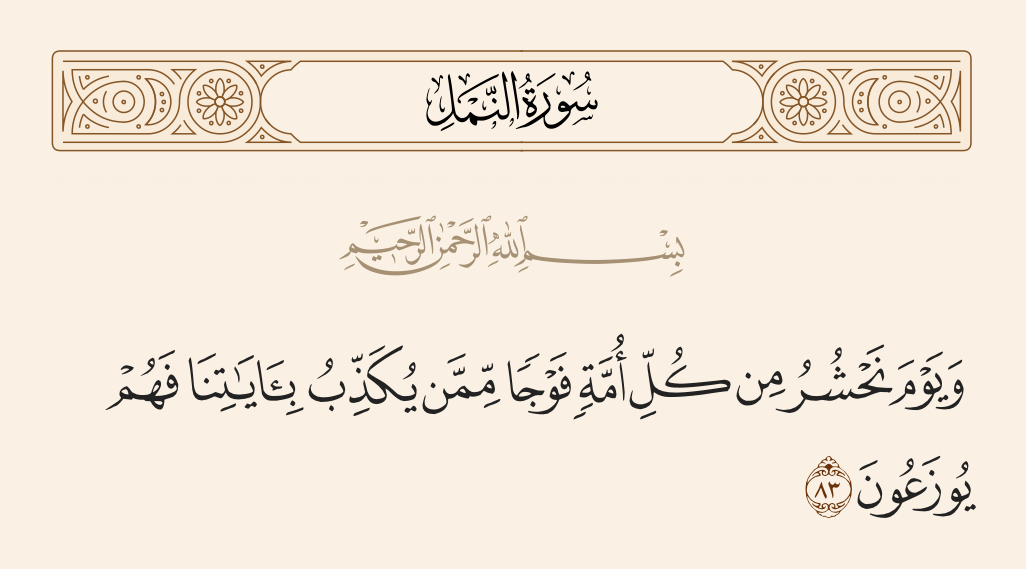 سُورَةُ النَّمْلِ
بِسْمِ ٱللَّهِ ٱلرَّحْمَٰنِ ٱلرَّحِيمِ
وَيَوْمَ نَحْشُرُ مِن كُلِّ أُمَّةٍ فَوْجًا مِّمَّن يُكَذِّبُ بِـَٔايَٰتِنَا فَهُمْ
يُوزَعُونَ ٨٣